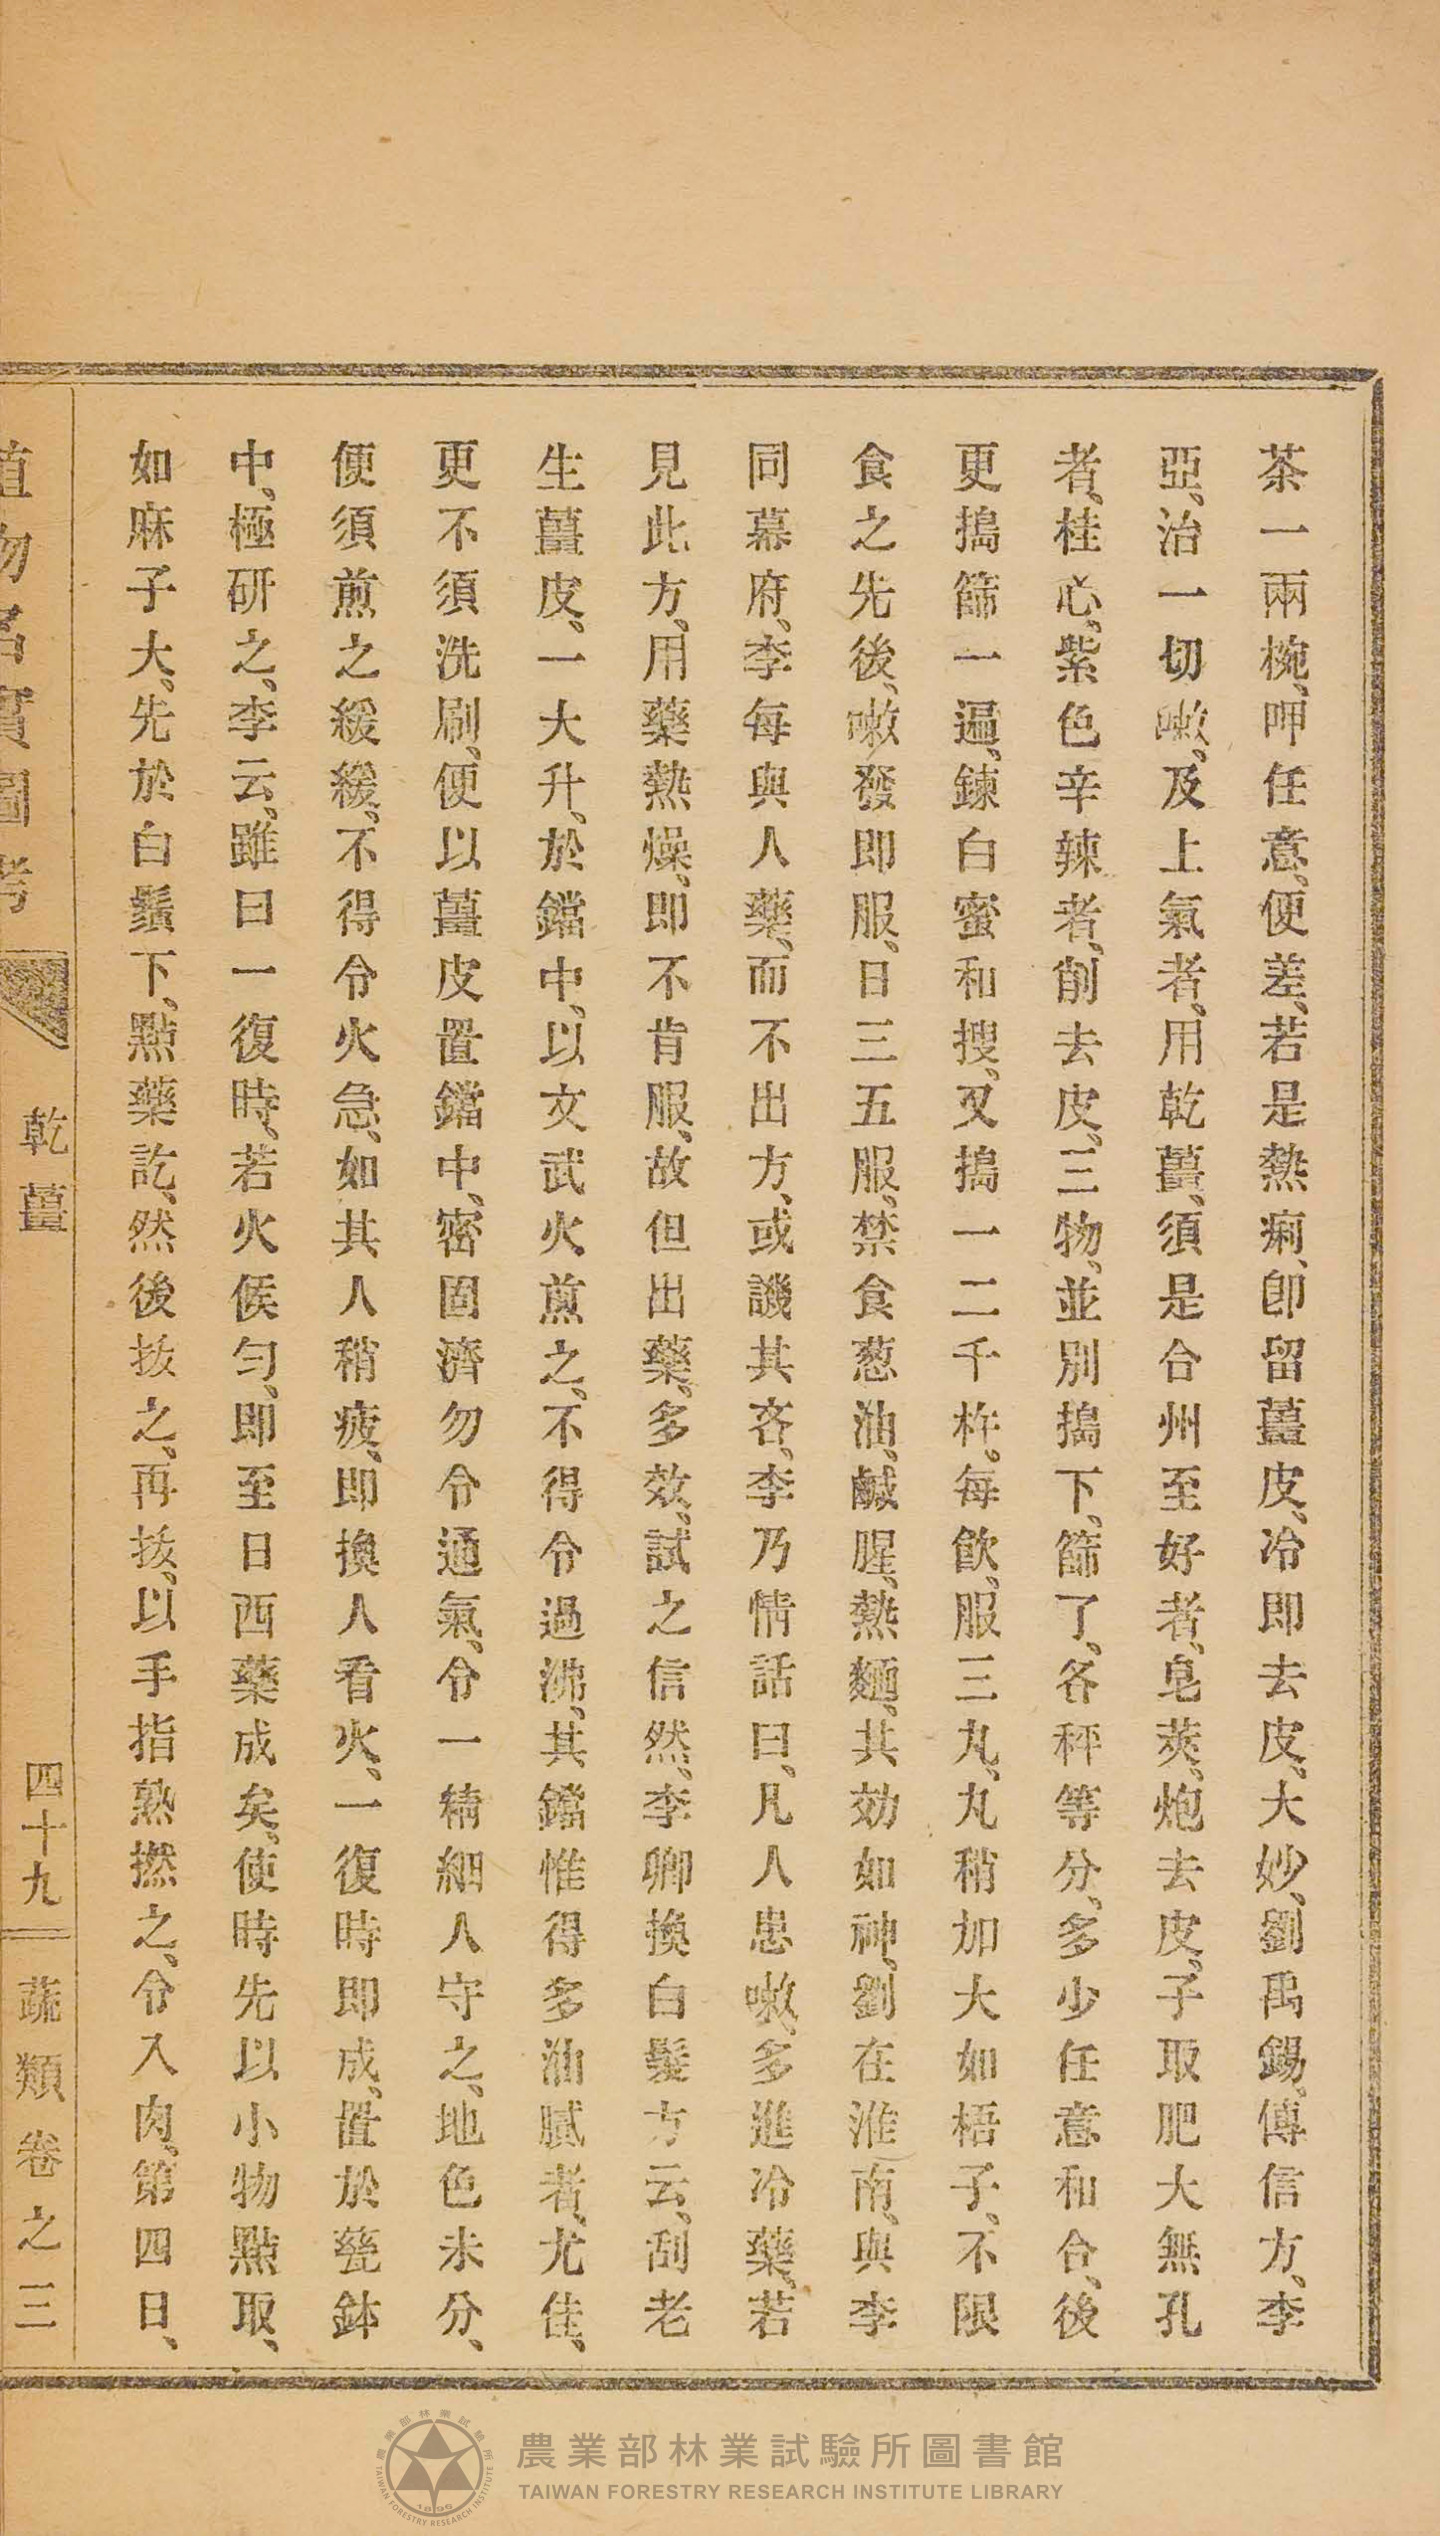 茶一兩椀、呷任意、便差、若是熱痢、卽留薑皮、冷即去皮、大妙、劉禹錫、傳信方、李
亞、治一切嗽、及上氣者、用乾薑、須是合州至好者、皂莢、炮去皮、子取肥大無孔
者、桂心、紫色辛辣者、削去皮、三物、並別搗下、篩了、各秤等分、多少任意和合、後
更搗篩一遍、鍊白蜜和搜、又搗一二千杵。每飲、服三丸、丸稍加大如梧子、不限
食之先後、嗽發即服、日三五服、禁食葱油、鹹腥、熱麵、其効如神、劉在淮南、與李
同幕府、李每與人藥、而不出方、或譏其吝、李乃情話曰、凡人患嗽、多進冷藥、若
見此方、用藥熱燥、即不肯服、故但出藥、多效、試之信然、李卿換白髮方云、刮老
生薑皮、一大升、於鐺中、以文武火煎之、不得令過沸、其鐺惟得多油膩者、尤佳、
更不須洗刷、便以薑皮置鐺中、密固濟勿令通氣、令一精細人守之、地色未分、
便須煎之緩緩、不得令火急、如其人稍疲、即換人看火、一復時即成、置於瓷鉢
中、極研之、李云、雖曰一復時、若火候勻、即至日西藥成矣、使時先以小物點取、
如麻子大、先於白鬚下、點藥訖、然後拔之、再拔、以手指熟撚之、令入肉、第四日、
植物名實圖考 乾薑 四十九 蔬類卷之三
農業部林業試驗所圖書館
TAIWAN FORESTRY RESEARCH INSTITUTE LIBRARY
農業部林業試驗所
TAIWAN FORESTRY RESEARCH INSTITUTE
1896